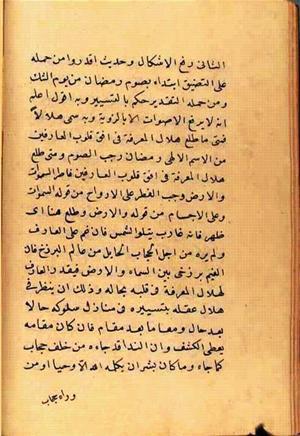 الثانى رفع الاشكال وحديث اقدروا من حمله
على التضييق ابتداء بصوم رمضان من يوم الشك
ومن حمله التقدير حكم بالتسيير وبه اقول اعلم
انه لا يرفع الاصوات الا بالرؤية وبه سمى هلالا
فمتى ما طلع هلال المعرفة فى افق قلوب العارفين
من الاسم الالهى رمضان وجب الصوم ومتى طلع
هلال المعرفة فى افق قلوب العارفين فاطر السموات
والارض وجب الفطر على الارواح من قوله السموات
وعلى الاجسام من قوله والارض وطلع هنا اى
ظهر فانه غارب يتلو الشمس فان غم على العارف
ولم يره من اجل الحجاب الحايل من عالم البرزخ فان
الغيم برزخى بين السماء والارض فيقدر العارف
لهلال المعرفة فى قلبه بحاله وذلك ان ينظر فى
هلال عقله بتسييره فى منازل سلوكه حالا
بعد حال ومقاما بعد مقام فان كان مقامه
يعطى الكشف وان النداء قد جاءه من خلف حجاب
كما جاء وما كان لبشر ان يكلمه الله الا وحيا او من
وراء حجاب